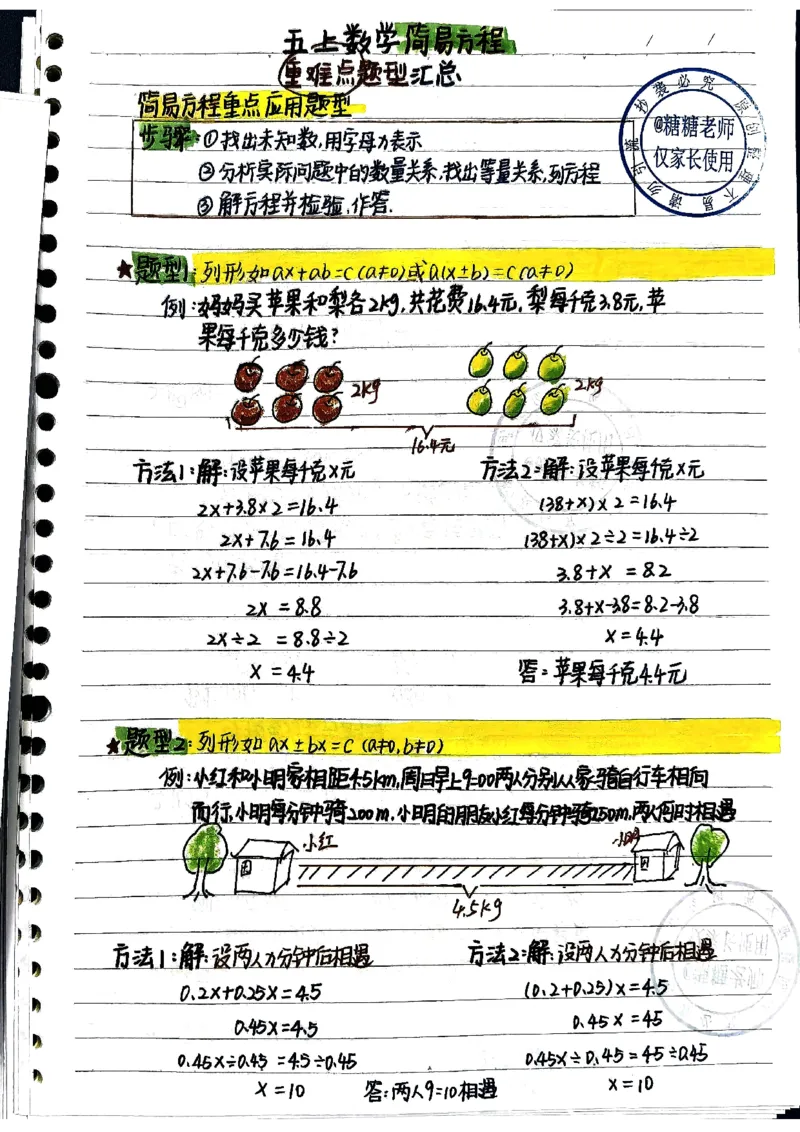 五上数学简易方程
重难点题型汇总
简易方程重点应用题型
步骤: ①找出未知数,用字母x表示
②分析实际问题中的数量关系,找出等量关系,列方程
③解方程并检验,作答.
@糖糖老师
仅家长使用
★题型1:列形如ax+ab=c(a≠0)或a(x±b)=c(a≠0)
例:妈妈买苹果和梨各2kg,共花费16.4元,梨每千克3.8元,苹
果每千克多少钱?
2kg
2kg
16.4元
方法1:解:设苹果每千克x元
2x+3.8×2=16.4
2x+7.6=16.4
2x+7.6-7.6=16.4-7.6
2x=8.8
2x÷2=8.8÷2
x=4.4
方法2:解:设苹果每千克x元
(38+x)×2=16.4
(38+x)×2÷2=16.4÷2
3.8+x=8.2
3.8+x-3.8=8.2-3.8
x=4.4
答:苹果每千克4.4元
★题型2:列形如ax±bx=c(a≠0,b≠0)
例:小红和小明家相距4.5km,周日早上9:00两人分别从家骑自行车相向
而行,小明每分钟骑200m,小明的朋友小红每分钟骑250m,两人何时相遇
小红
小明
4.5kg
方法1:解:设两人x分钟后相遇
0.2x+0.25x=4.5
0.45x=4.5
0.45x÷0.45=4.5÷0.45
x=10
方法2:解:设两人x分钟后相遇
(0.2+0.25)x=4.5
0.45x=45
0.45x÷0.45=45÷0.45
x=10
答:两人9:10相遇